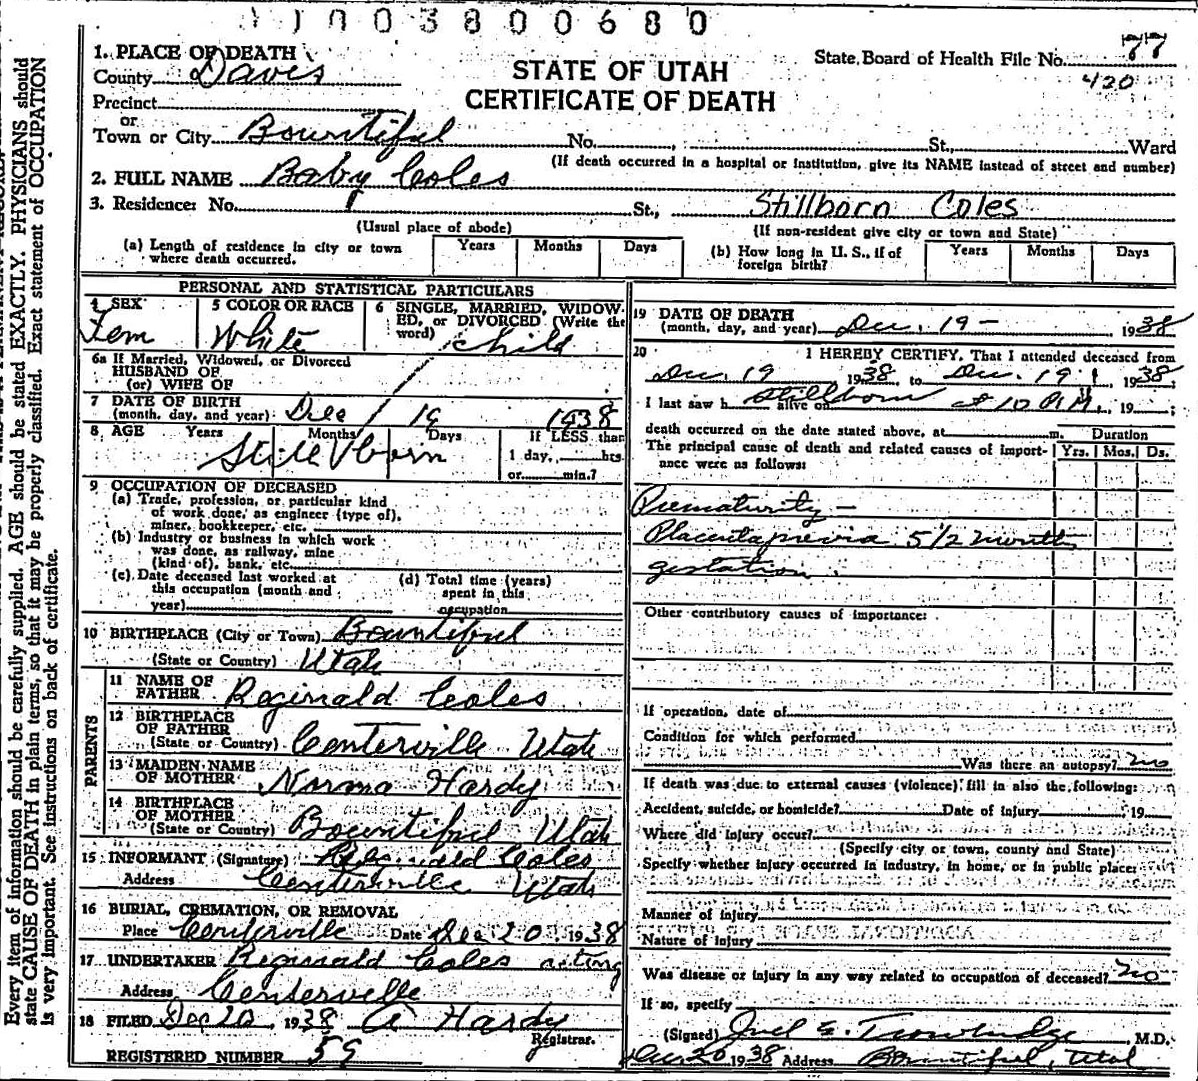 1003800680
1. PLACE OF DEATH
County Davis
Precinct
or
Town or City Bountiful No. , St., Ward
(If death occurred in a hospital or institution, give its NAME instead of street and number)
STATE OF UTAH
CERTIFICATE OF DEATH
State Board of Health File No. 77
420
2. FULL NAME Baby Coles
3. Residence: No. St., Stillborn Coles
(Usual place of abode) (If non-resident give city or town and State)
(a) Length of residence in city or town where death occurred. Years Months Days (b) How long in U. S., if of foreign birth? Years Months Days
PERSONAL AND STATISTICAL PARTICULARS
4 SEX Fem
5 COLOR OR RACE White
6 SINGLE, MARRIED, WIDOWED, or DIVORCED (Write the word) child
6a If Married, Widowed, or Divorced
HUSBAND OF
(or) WIFE OF
7 DATE OF BIRTH
(month, day, and year) Dec 19 1938
8 AGE Years Months Days If LESS than
1 day, hrs.
or min.?
Stillborn
9 OCCUPATION OF DECEASED
(a) Trade, profession, or particular kind
of work done, as engineer (type of),
miner, bookkeeper, etc.
(b) Industry or business in which work
was done, as railway, mine
(kind of), bank, etc.
(c) Date deceased last worked at
this occupation (month and
year)
(d) Total time (years)
spent in this
occupation
10 BIRTHPLACE (City or Town) Bountiful
(State or Country) Utah
PARENTS
11 NAME OF
FATHER Reginald Coles
12 BIRTHPLACE
OF FATHER
(State or Country) Centerville Utah
13 MAIDEN NAME
OF MOTHER Norma Hardy
14 BIRTHPLACE
OF MOTHER
(State or Country) Bountiful Utah
15 INFORMANT (Signature) Reginald Coles
Address Centerville Utah
16 BURIAL, CREMATION, OR REMOVAL
Place Centerville Date Dec 20 1938
17 UNDERTAKER Reginald Coles acting
Address Centerville
18 FILED Dec 20 1938 A Hardy
Registrar.
REGISTERED NUMBER 59
19 DATE OF DEATH
(month, day, and year) Dec. 19 - 1938
20 I HEREBY CERTIFY, That I attended deceased from
Dec. 19 1938, to Dec. 19 1938;
I last saw h alive on Stillborn at 10 P.M., 19 ;
death occurred on the date stated above, at m.
The principal cause of death and related causes of importance were as follows:
Duration
Yrs. Mos. Ds.
Prematurity -
Placenta previa 5 1/2 months
gestation.
Other contributory causes of importance:
If operation, date of
Condition for which performed
Was there an autopsy? no
If death was due to external causes (violence) fill in also the following:
Accident, suicide, or homicide? Date of injury 19
Where did injury occur?
(Specify city or town, county and State)
Specify whether injury occurred in industry, in home, or in public place:
Manner of injury
Nature of Injury
Was disease or injury in any way related to occupation of deceased? no
If so, specify
(Signed) Joel E. Trowbridge, M.D.
Dec 20 1938 Address Bountiful, Utah
Every item of information should be carefully supplied. AGE should be stated EXACTLY. PHYSICIANS should
state CAUSE OF DEATH in plain terms, so that it may be properly classified. Exact statement of OCCUPATION
is very important. See instructions on back of certificate.